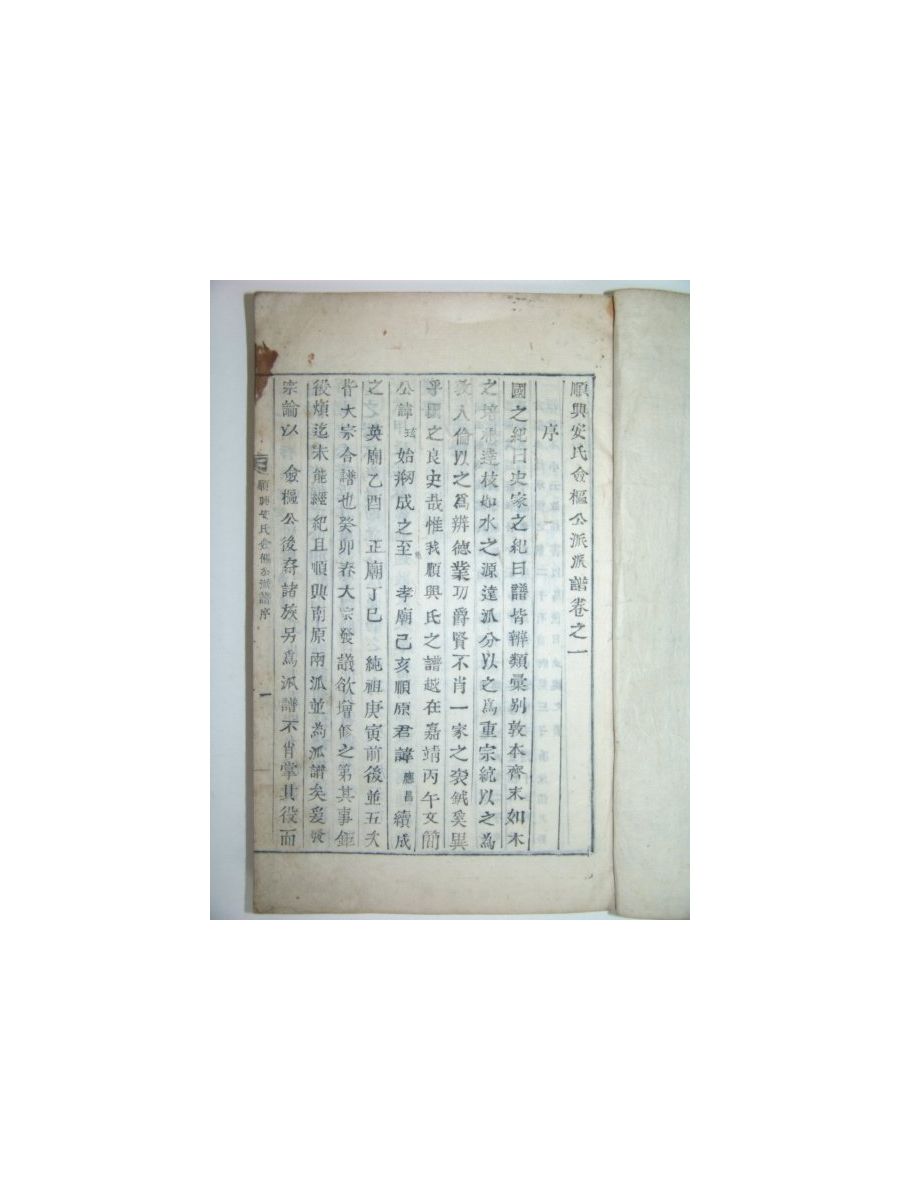 順興安氏僉樞公派派譜卷之一
序
國之紀曰史家之紀曰譜皆辨類彙別敦本齊末如木
之培馮達枝如水之源達派分以之爲重宗統以之為
敎人倫以之爲辨德業功爵賢不肖一家之袞鉞奚異
乎國之良史哉惟我順興氏之譜越在嘉靖丙午文簡
公諱玹始刱成之至 孝廟己亥順原君諱應昌續成
之 英廟乙酉 正廟丁巳 純祖庚寅前後並五次
皆大宗合譜也癸卯春大宗發議欲增修之第其事鉅
後煩迄未能經紀且順興南原兩派並為派譜矣爰發
宗論以 僉樞公後裔諸族另爲派譜不肖掌其役而
順興安氏僉樞公派譜序 一